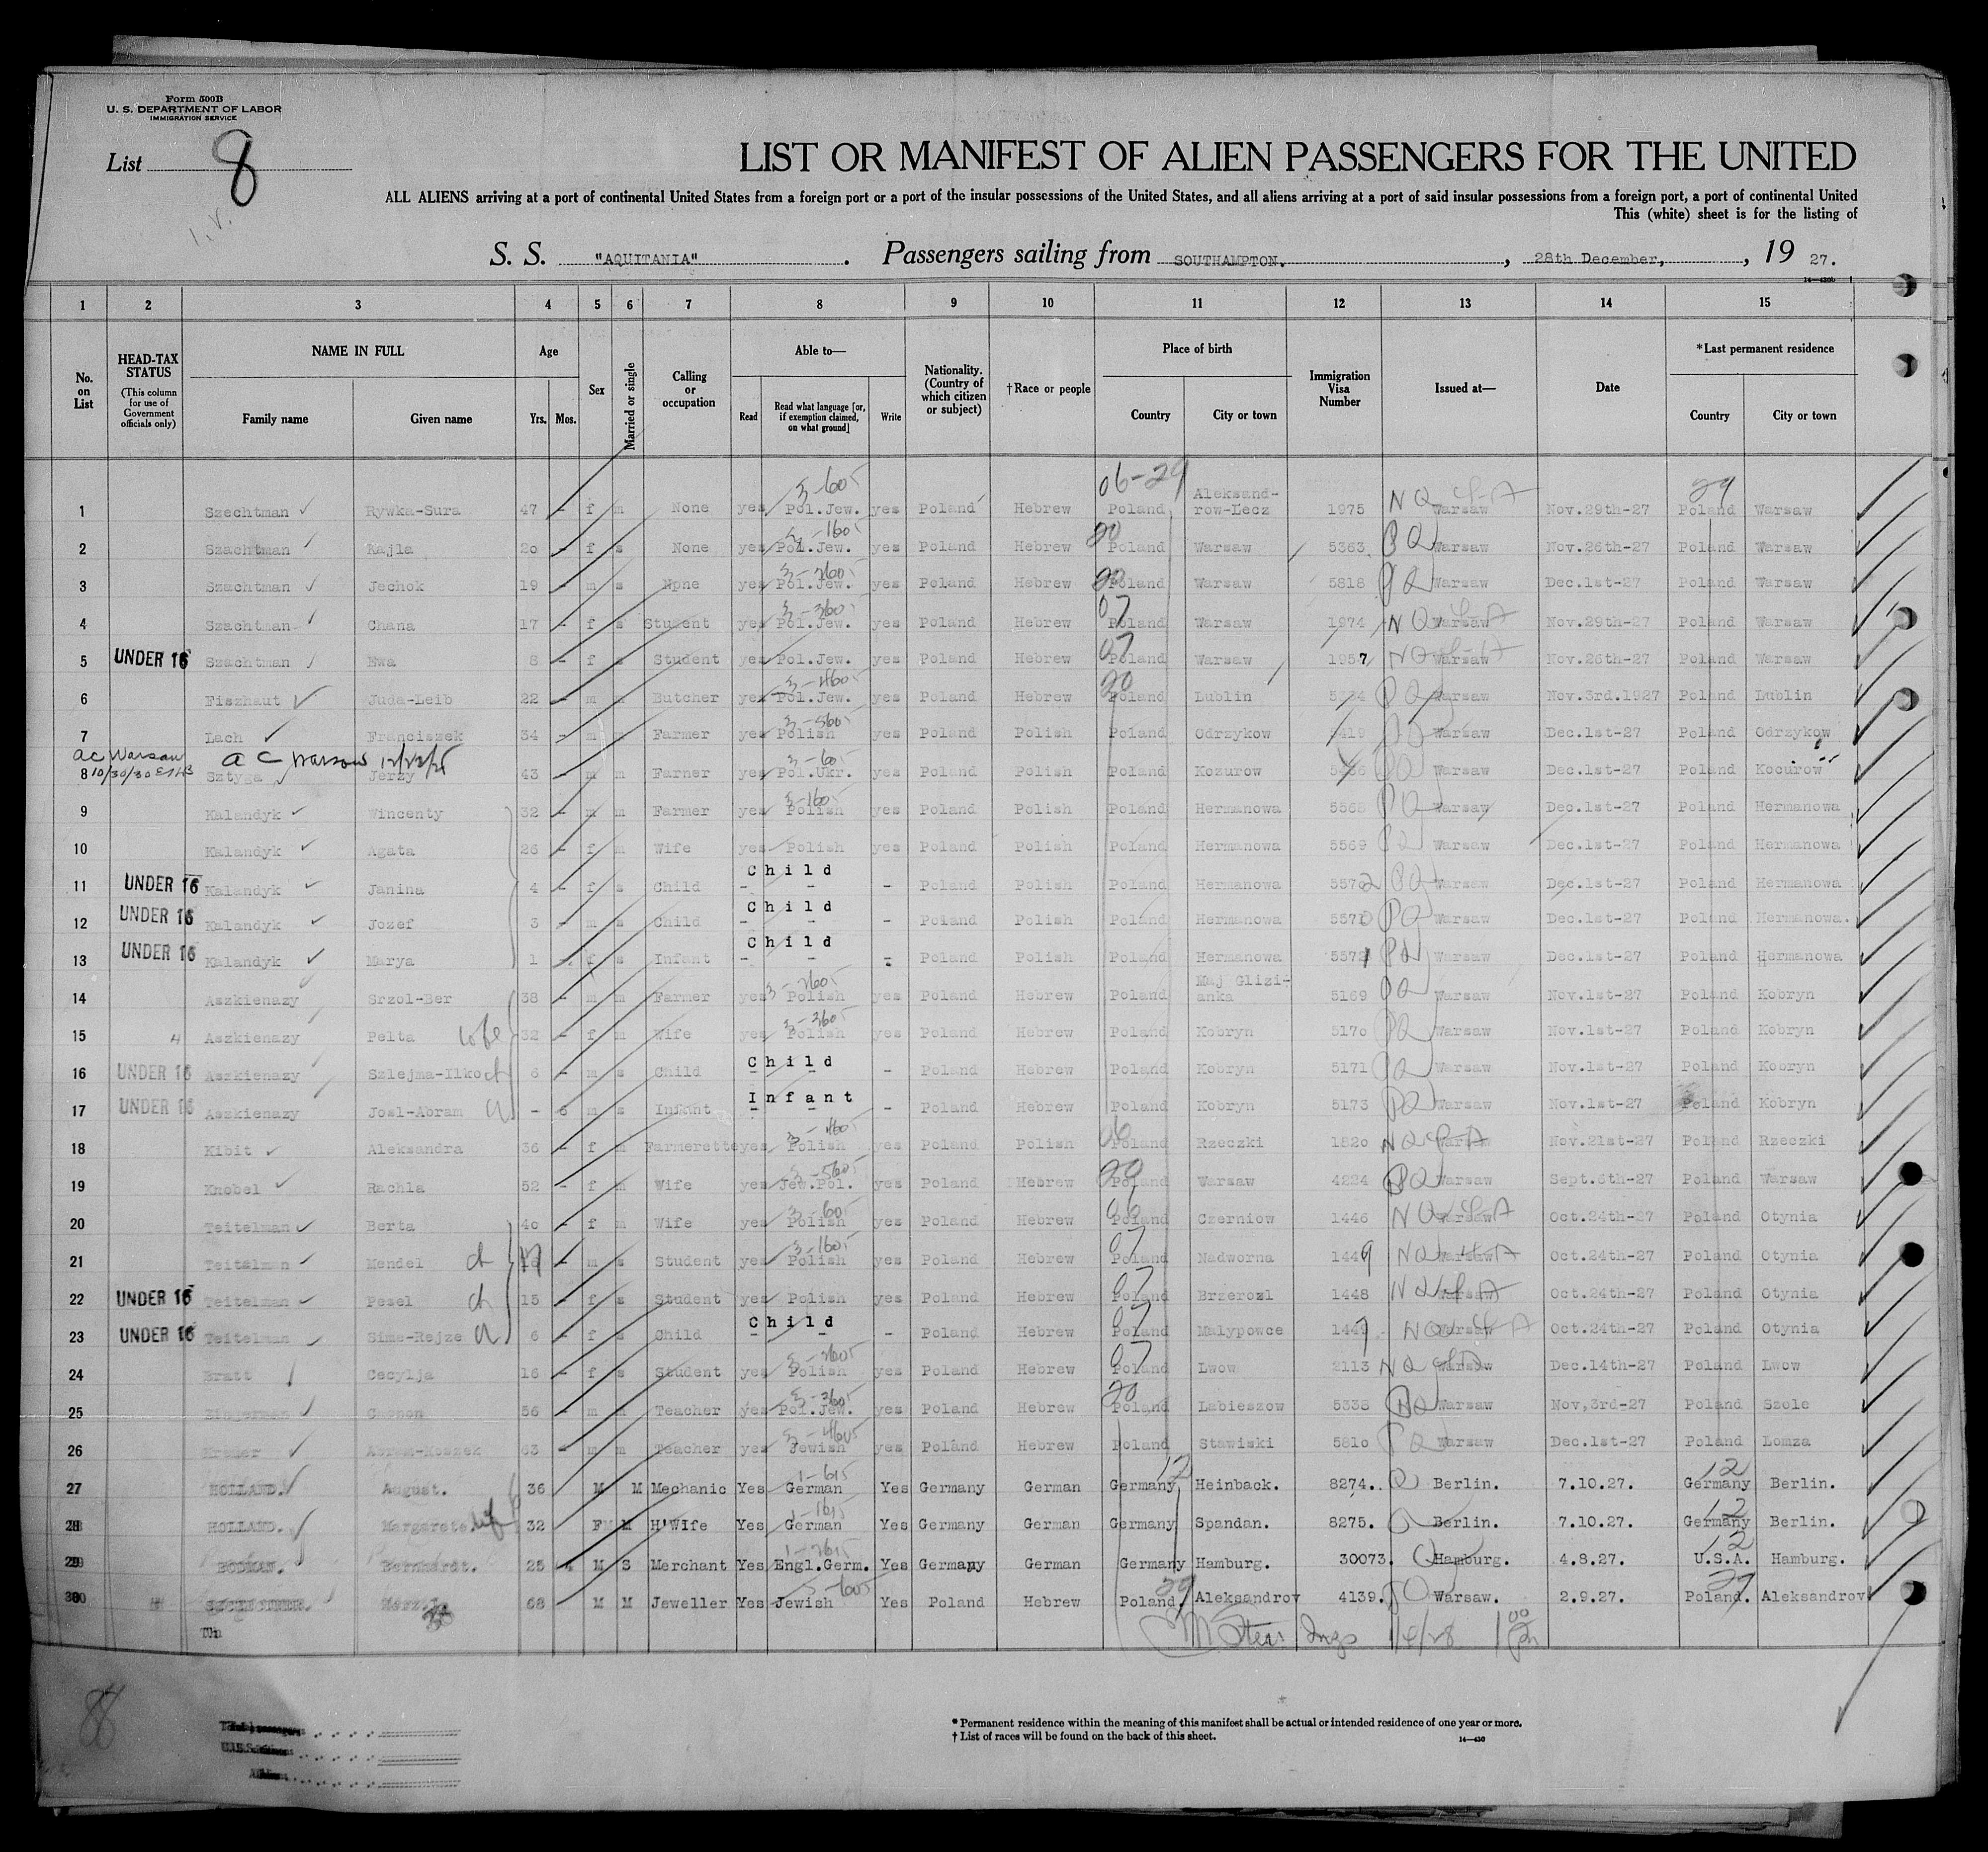 Form 500B
U. S. DEPARTMENT OF LABOR
IMMIGRATION SERVICE
List 8
LIST OR MANIFEST OF ALIEN PASSENGERS FOR THE UNITED
ALL ALIENS arriving at a port of continental United States from a foreign port or a port of the insular possessions of the United States, and all aliens arriving at a port of said insular possessions from a foreign port, a port of continental United
This (white) sheet is for the listing of
S. S. "AQUITANIA". Passengers sailing from SOUTHAMPTON., 28th December,, 19 27.
1 2 3 4 5 6 7 8 9 10 11 12 13 14 15
No. on List
HEAD-TAX STATUS (This column for use of Government officials only)
NAME IN FULL Family name Given name
Age Yrs. Mos.
Sex
Married or single
Calling or occupation
Able to— Read Read what language [or, if exemption claimed, on what ground] Write
Nationality. (Country of which citizen or subject)
†Race or people
Place of birth Country City or town
Immigration Visa Number
Issued at—
Date
*Last permanent residence Country City or town
1 Szechtman Rywka-Sura 47 - f m None yes Pol.Jew. yes Poland Hebrew Poland Aleksand-row-Lecz 1975 NQ Warsaw Nov.29th-27 Poland Warsaw
2 Szachtman Rajla 20 - f s None yes Pol.Jew. yes Poland Hebrew Poland Warsaw 5363 PQ Warsaw Nov.26th-27 Poland Warsaw
3 Szachtman Jechok 19 - m s None yes Pol.Jew. yes Poland Hebrew Poland Warsaw 5818 PQ Warsaw Dec.1st-27 Poland Warsaw
4 Szachtman Chana 17 - f s Student yes Pol.Jew. yes Poland Hebrew Poland Warsaw 1974 NQ Warsaw Nov.29th-27 Poland Warsaw
5 UNDER 16 Szachtman Ewa 8 - f s Student yes Pol.Jew. yes Poland Hebrew Poland Warsaw 1957 NQ Warsaw Nov.26th-27 Poland Warsaw
6 Fiszhaut Juda-Leib 22 - m Butcher yes Pol.Jew. yes Poland Hebrew Poland Lublin PQ Warsaw Nov.3rd.1927 Poland Lublin
7 Lach Franciszek 34 - m m Farmer yes Polish yes Poland Polish Poland Odrzykow Warsaw Dec.1st-27 Poland Odrzykow
ac Warsaw 10/30/30 a c Warsaw
8 Sztyga Jerzy 43 - m m Farner yes Pol.Ukr. yes Poland Polish Poland Kozurow PQ Warsaw Dec.1st-27 Poland Kocurow
9 Kalandyk Wincenty 32 - m m Farmer yes Polish yes Poland Polish Poland Hermanowa 5568 PQ Warsaw Dec.1st-27 Poland Hermanowa
10 Kalandyk Agata 26 - f m Wife yes Polish yes Poland Polish Poland Hermanowa 5569 PQ Warsaw Dec.1st-27 Poland Hermanowa
11 UNDER 16 Kalandyk Janina 4 - f s Child Child - - - Poland Polish Poland Hermanowa 5572 PQ Warsaw Dec.1st-27 Poland Hermanowa
12 UNDER 16 Kalandyk Jozef 3 - m s Child Child - - - Poland Polish Poland Hermanowa 5570 PQ Warsaw Dec.1st-27 Poland Hermanowa.
13 UNDER 16 Kalandyk Marya 1 - f s Infant Child - - - Poland Polish Poland Hermanowa 5571 PQ Warsaw Dec.1st-27 Poland Hermanowa
14 Aszkienazy Srzol-Ber 38 - m m Farmer yes Polish yes Poland Hebrew Poland Maj Glizi-anka 5169 PQ Warsaw Nov.1st-27 Poland Kobryn
15 Aszkienazy Pelta wife 32 - f m Wife yes Polish yes Poland Hebrew Poland Kobryn 5170 PQ Warsaw Nov.1st-27 Poland Kobryn
16 UNDER 16 Aszkienazy Szlejma-Ilko ch 6 - m s Child Child - - - Poland Hebrew Poland Kobryn 5171 PQ Warsaw Nov.1st-27 Poland Kobryn
17 UNDER 16 Aszkienazy Josl-Abram ch - 6 m s Infant Infant - - - Poland Hebrew Poland Kobryn 5173 PQ Warsaw Nov.1st-27 Poland Kobryn
18 Kibit Aleksandra 36 - f m Farmerette yes Polish yes Poland Polish Poland Rzeczki 1820 NQ Warsaw Nov.21st-27 Poland Rzeczki
19 Knobel Rachla 52 - f m Wife yes Jew.Pol. yes Poland Hebrew Poland Warsaw 4224 PQ Warsaw Sept.6th-27 Poland Warsaw
20 Teitelman Berta 40 - f m Wife yes Polish yes Poland Hebrew Poland Czerniow 1446 NQ Warsaw Oct.24th-27 Poland Otynia
21 Teitelman Mendel ch - m s Student yes Polish yes Poland Hebrew Poland Nadworna NQ Warsaw Oct.24th-27 Poland Otynia
22 UNDER 16 Teitelman Pesel ch 15 - f s Student yes Polish yes Poland Hebrew Poland Brzerozl 1448 NQ Warsaw Oct.24th-27 Poland Otynia
23 UNDER 16 Teitelman Sime-Rejze ch 6 - f s Child Child - - - Poland Hebrew Poland Malypowce NQ Warsaw Oct.24th-27 Poland Otynia
24 Bratt Cecylja 16 - f s Student yes Polish yes Poland Hebrew Poland Lwow 2113 NQ Warsaw Dec.14th-27 Poland Lwow
25 56 - m Teacher yes Pol.Jew. yes Poland Hebrew Poland Labieszow 5338 PQ Warsaw Nov,3rd-27 Poland Szole
26 Kremer Abram-Koszek 63 - m m Teacher yes Jewish yes Poland Hebrew Poland Stawiski 5810 PQ Warsaw Dec.1st-27 Poland Lomza
27 HOLLAND. August. 36 M M Mechanic Yes German Yes Germany German Germany Heinback. 8274. Q Berlin. 7.10.27. Germany Berlin.
28 HOLLAND. Margarete wife 32 F M H'Wife Yes German Yes Germany German Germany Spandan. 8275. Q Berlin. 7.10.27. Germany Berlin.
29 BODMAN. Bernhardt. 25 M S Merchant Yes Engl.Germ. Yes Germany German Germany Hamburg. 30073. Q Hamburg. 4.8.27. U.S.A. Hamburg.
30 68 M M Jeweller Yes Jewish Yes Poland Hebrew Poland. Aleksandrov 4139. Warsaw. 2.9.27. Poland. Aleksandrov
1/4/28 1 00 pm
* Permanent residence within the meaning of this manifest shall be actual or intended residence of one year or more.
† List of races will be found on the back of this sheet.
14—430